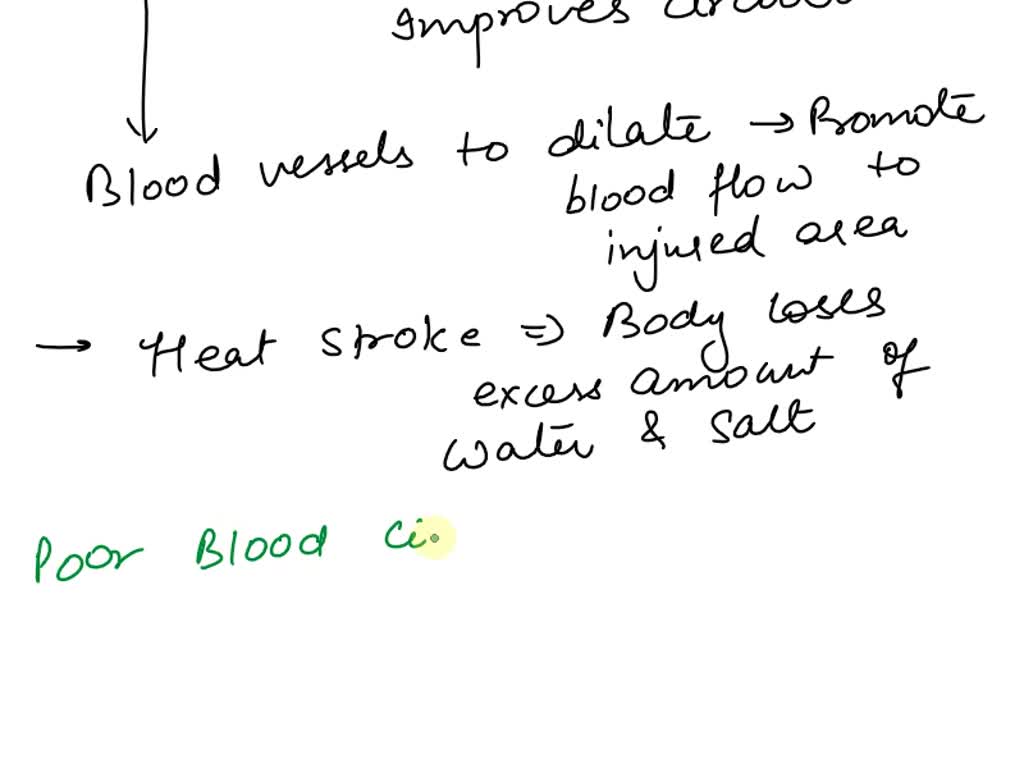 Improves
Blood vessels to dilate → Promote
blood flow to
injured area
→ Heat stroke ⇒ Body loses
excess amount of
water & salt
Poor Blood Ci